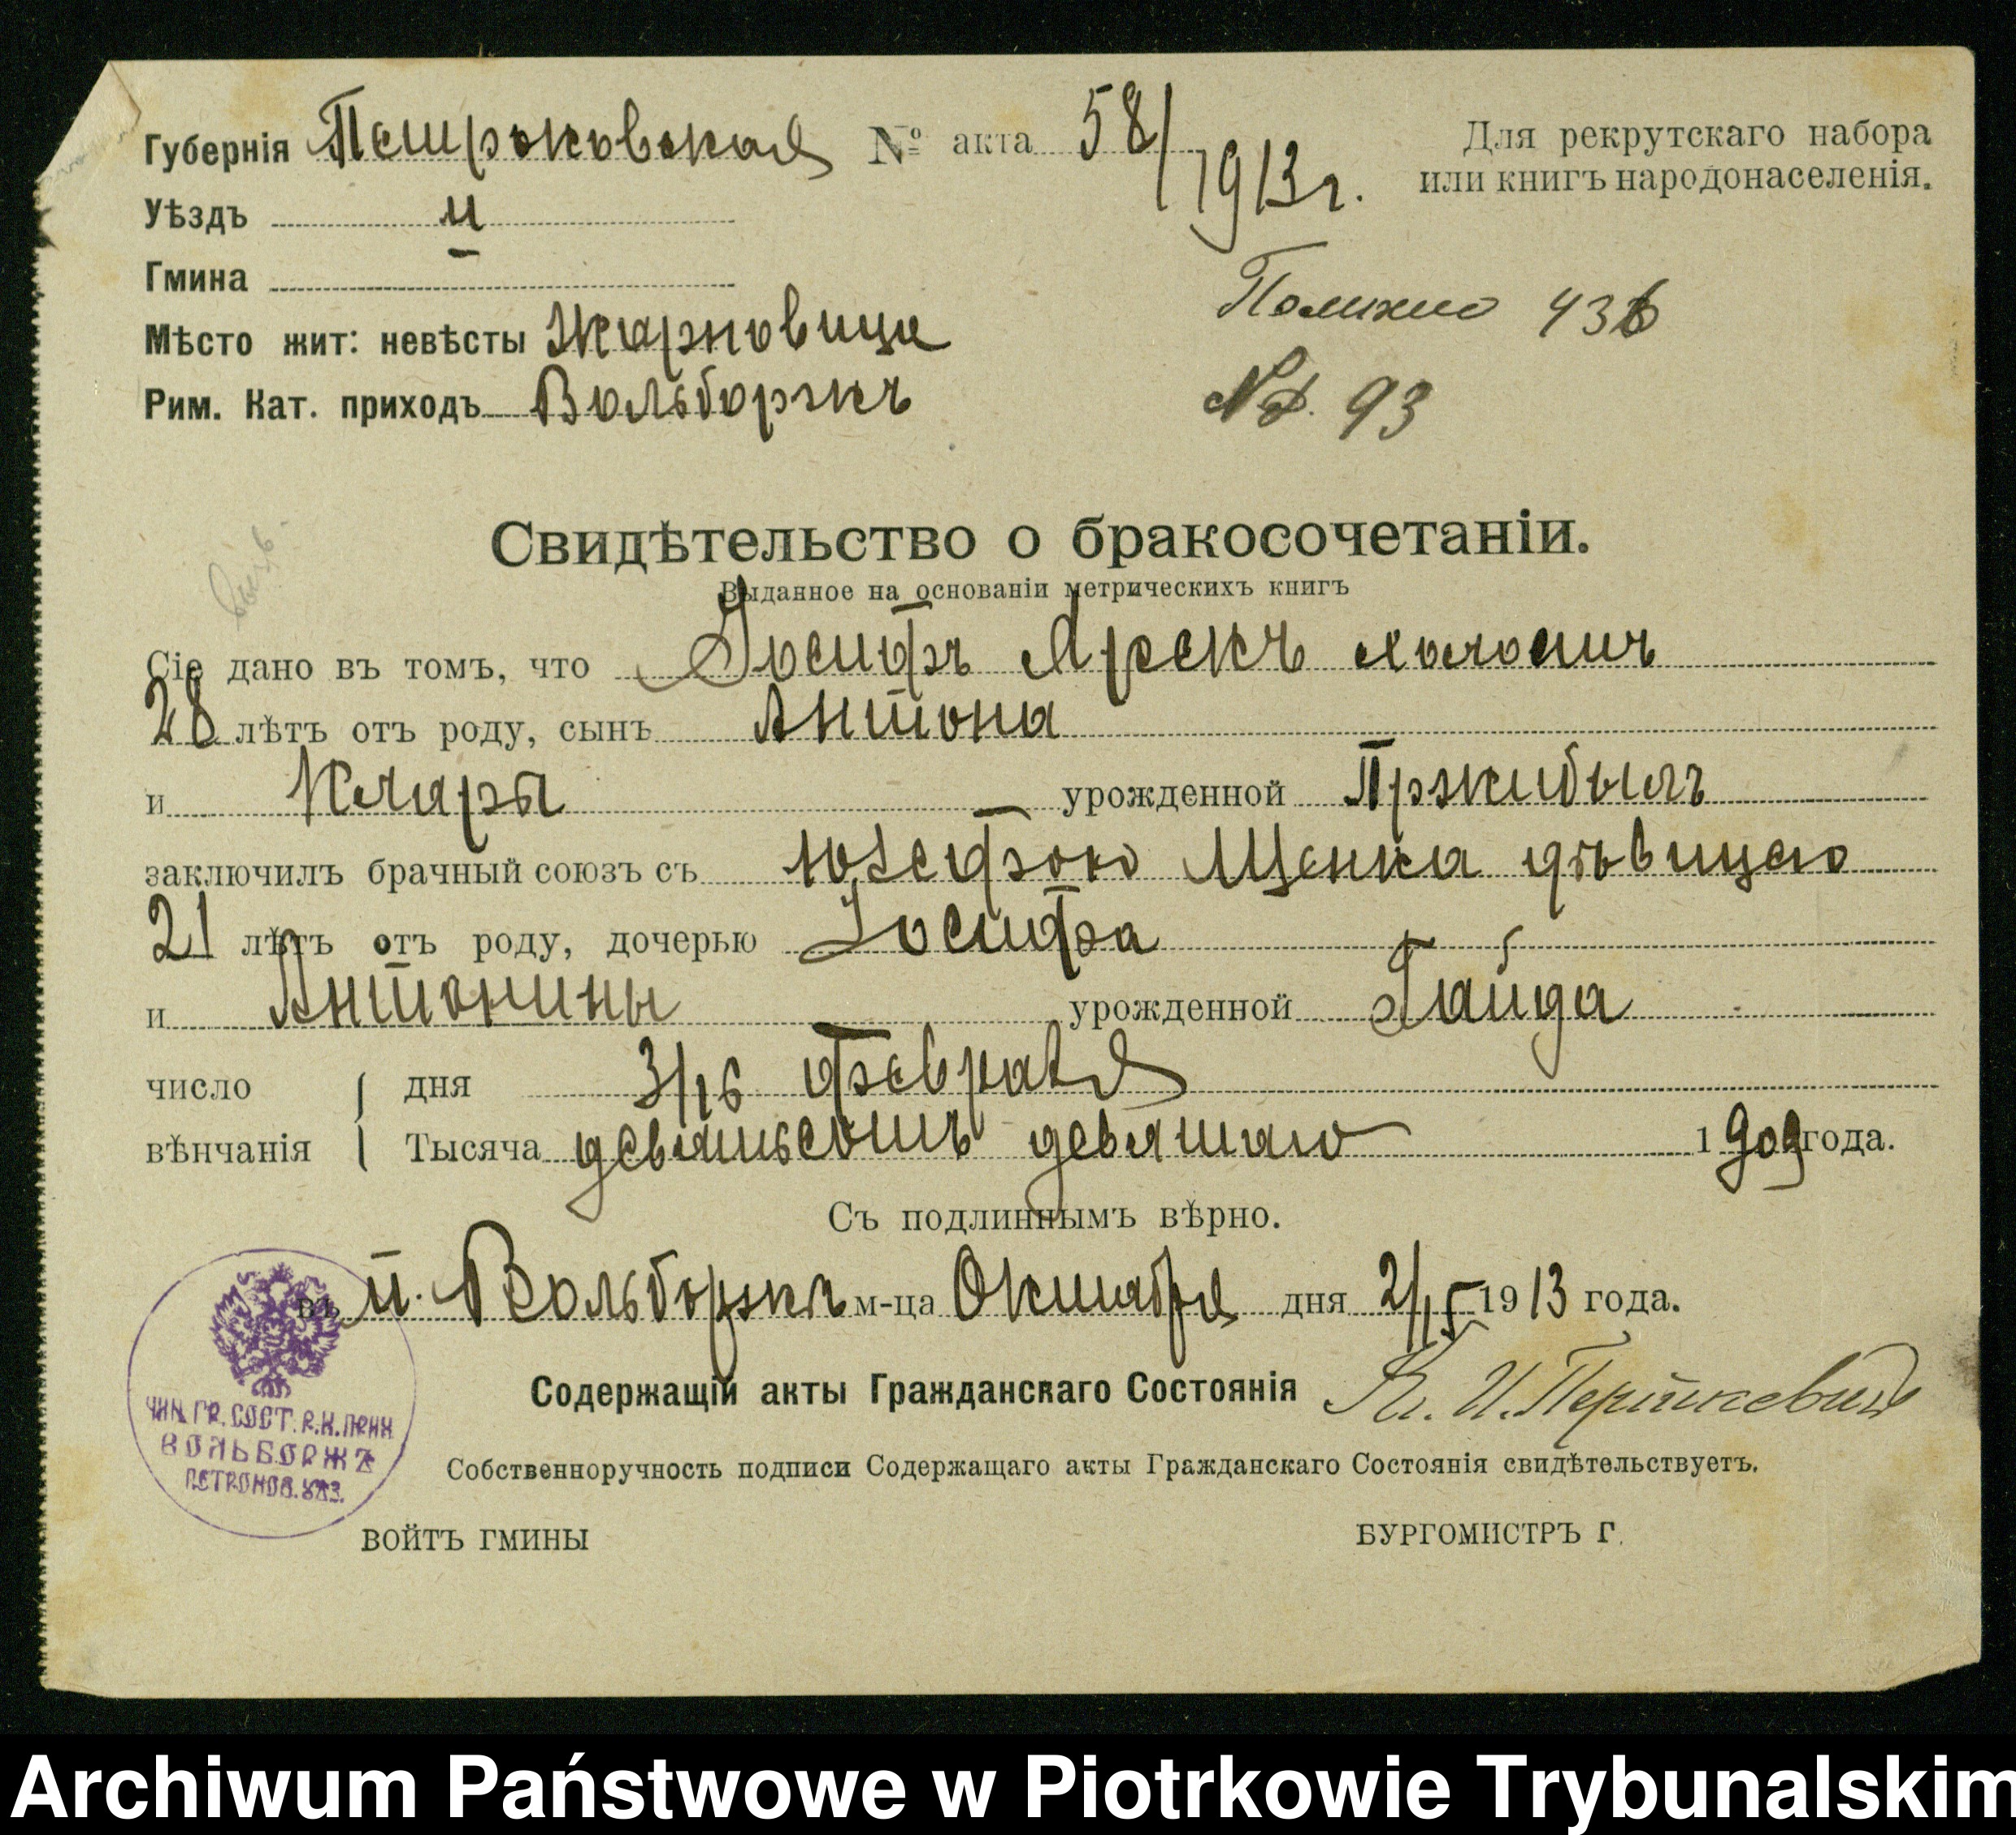 Губернія Петроковская № акта 58/1913 г. Для рекрутскаго набора
или книгъ народонаселенія.
Уѣздъ и
Гмина
Мѣсто жит: невѣсты Жарновица
Рим. Кат. приходъ Вольборжъ
Nd. 93
Свидѣтельство о бракосочетаніи.
Выданное на основаніи метрическихъ книгъ
Сіе дано въ томъ, что Іосифъ Ярекъ холостъ
28 лѣтъ отъ роду, сынъ Антона
и Клары урожденной Пржибылъ
заключилъ брачный союзъ съ Юзефою Щенка дѣвицею
21 лѣтъ отъ роду, дочерью Іосифа
и Антонины урожденной Гайда
число вѣнчанія { дня 3/16 февраля
Тысяча девятьсотъ девятаго 1909 года.
Съ подлиннымъ вѣрно.
въ п. Вольборжъ м-ца Октября дня 2/15 1913 года.
Содержащій акты Гражданскаго Состоянія
Собственноручность подписи Содержащаго акты Гражданскаго Состоянія свидѣтельствуетъ.
ЧИН. ГР. СОСТ. Р. К. ПРИХ
ВОЛЬБОРЖЪ
ПЕТРОКОВ. УѢЗ.
ВОЙТЪ ГМИНЫ БУРГОМИСТРЪ Г.
Archiwum Państwowe w Piotrkowie Trybunalskim